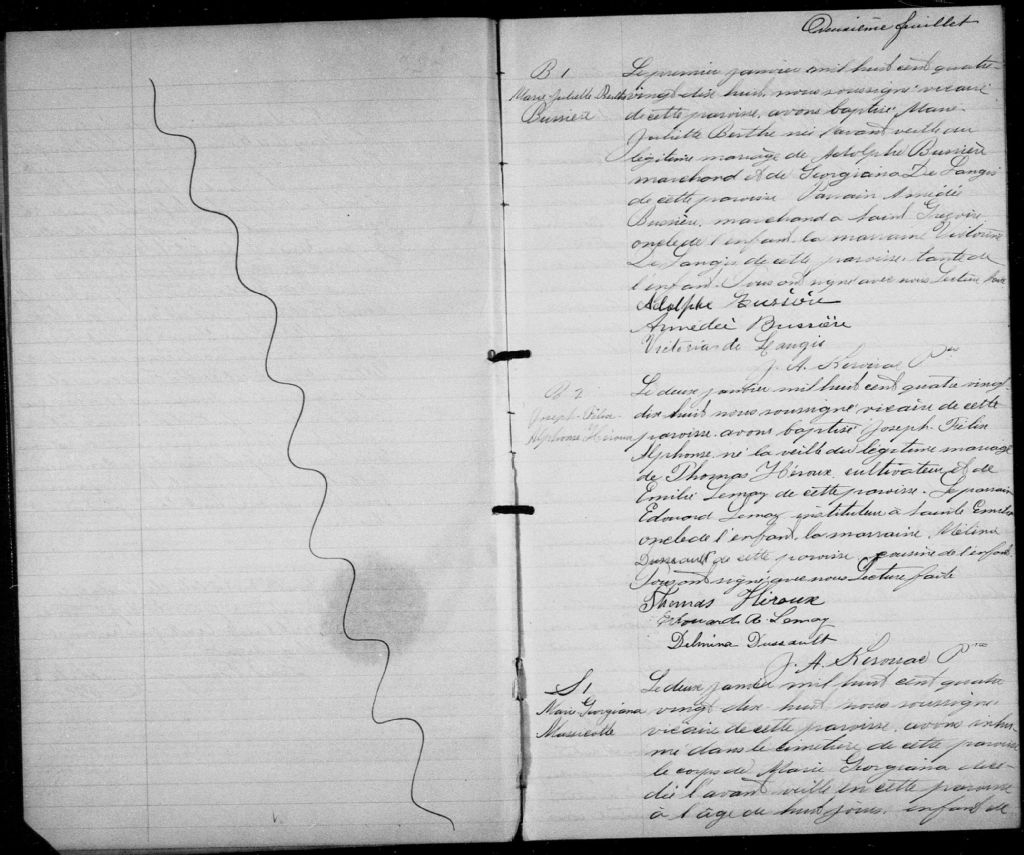 Deuxième feuillet
B 1
Marie Juliette Berthe
Bussière
Le premier janvier mil huit cent quatre-
vingt dix huit, nous soussigné vicaire
de cette paroisse, avons baptisé Marie
Juliette Berthe née l'avant veille du
légitime mariage de Adolphe Bussière
marchand et de Georgiana De Langis
de cette paroisse Parrain Amédée
Bussière, marchand a Saint Grégoire
oncle de l'enfant, la marraine Victorine
De Langis de cette paroisse, tante de
l'enfant. Tous ont signé avec nous Lecture faite
Adolphe Bussière
Amédée Bussière
Victoria de Langis
J. A. Kerouac Ptre
B 2
Joseph-Félix
Alphonse Héroux
Le deux janvier mil huit cent quatre vingt
dix huit nous soussigné vicaire de cette
paroisse avons baptisé Joseph Félix
Alphonse, né la veille du légitime mariage
de Thomas Héroux cultivateur et de
Emilie Lemay de cette paroisse. Le parrain
Edouard Lemay instituteur à Sainte
oncle de l'enfant, la marraine Mélina
Dussault de cette paroisse cousine de l'enfant.
Tous ont signé avec nous Lecture faite
Thomas Héroux
Edouard R. Lemay
Delmina Dussault
J. A. Kerouac Ptre
S 1
Marie Georgiana
Massicotte
Le deux janvier mil huit cent quatre
vingt dix huit nous soussigné
vicaire de cette paroisse, avons inhu-
mé dans le cimetière de cette paroisse
le corps de Marie Georgiana décé-
dée l'avant veille en cette paroisse
à l'âge de huit jours, enfant de